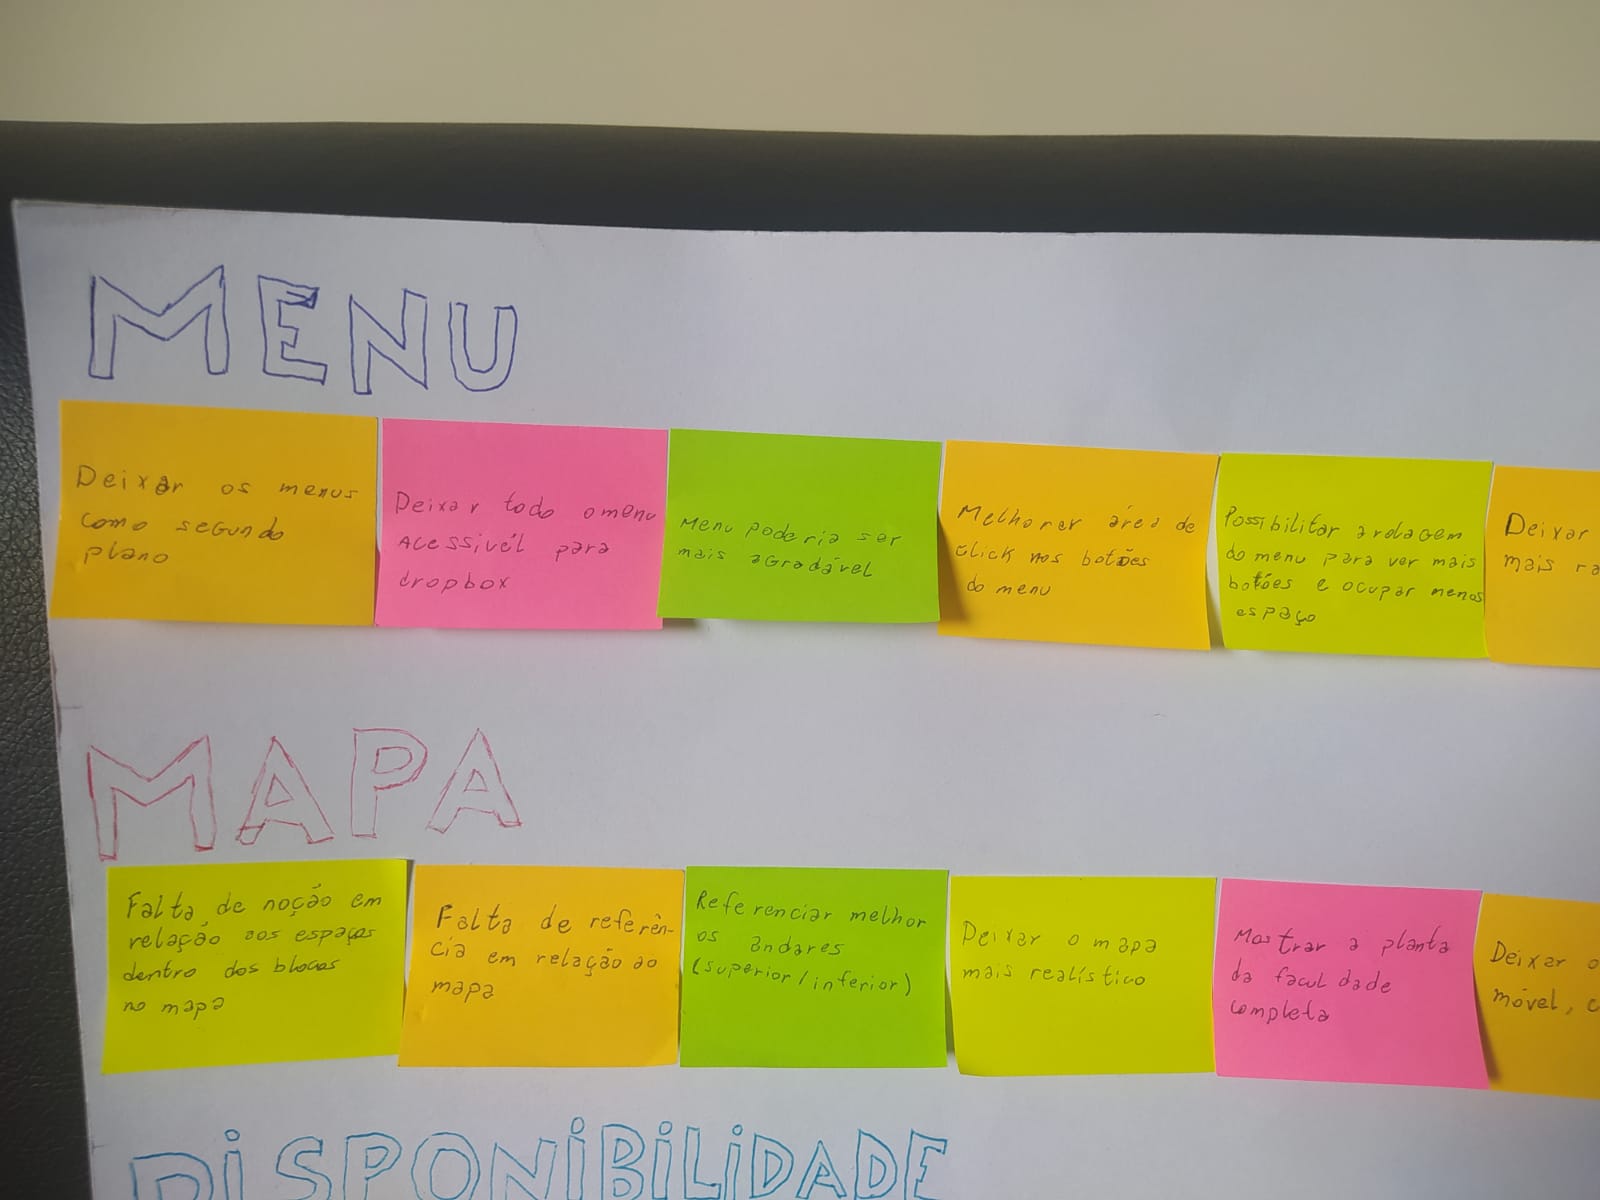 MENU
Deixar os menus
como segundo
plano
Deixar todo o menu
acessivél para
dropbox
Menu poderia ser
mais agradável
Melhorar área de
click nos botões
do menu
Possibilitar a rolagem
do menu para ver mais
botões e ocupar menos
espaço
Deixar
mais
MAPA
Falta de noção em
relação aos espaços
dentro dos blocos
no mapa
Falta de referên-
cia em relação ao
mapa
Referenciar melhor
os andares
(superior/inferior)
Deixar o mapa
mais realístico
Mostrar a planta
da faculdade
completa
Deixar o
móvel,
DISPONIBILIDADE